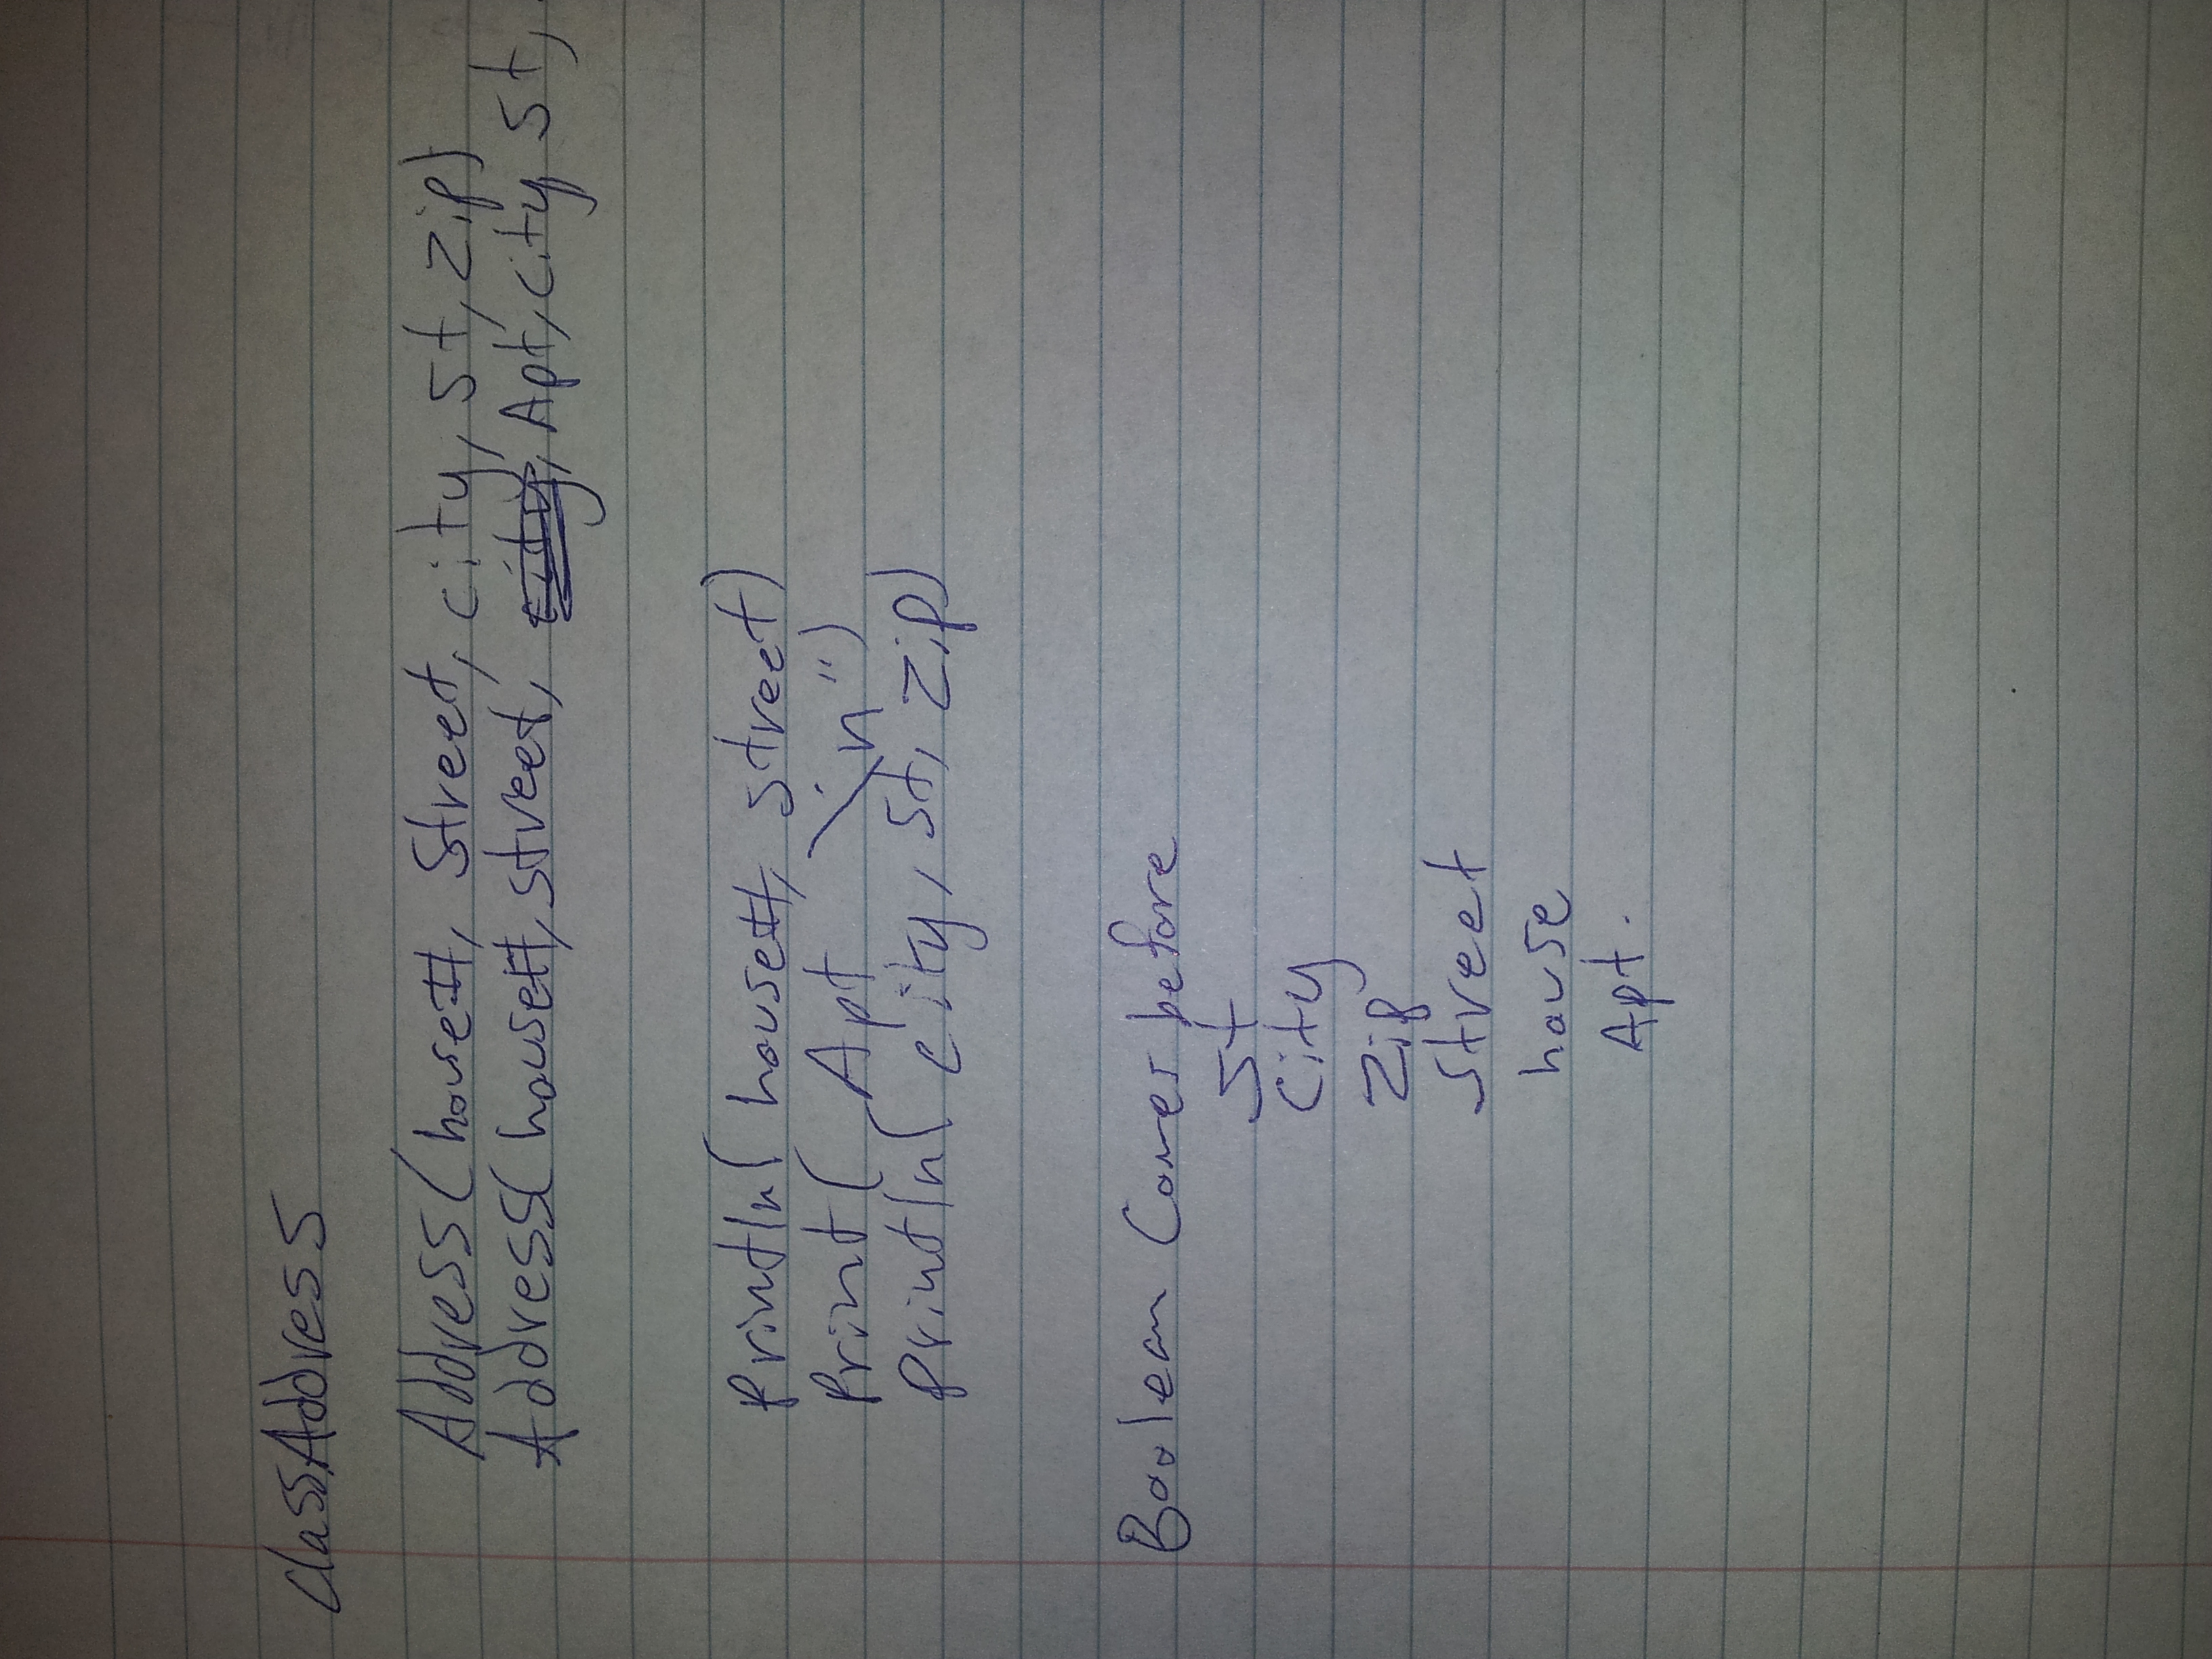 class Address
Address(house#, Street, city, St, Zip)
Address(house#, street, Apt, city St,
println( house#, street)
Print( Apt \n")
println( city, St, Zip)
Boolean Comes before
St
City
Zip
Street
house
Apt.